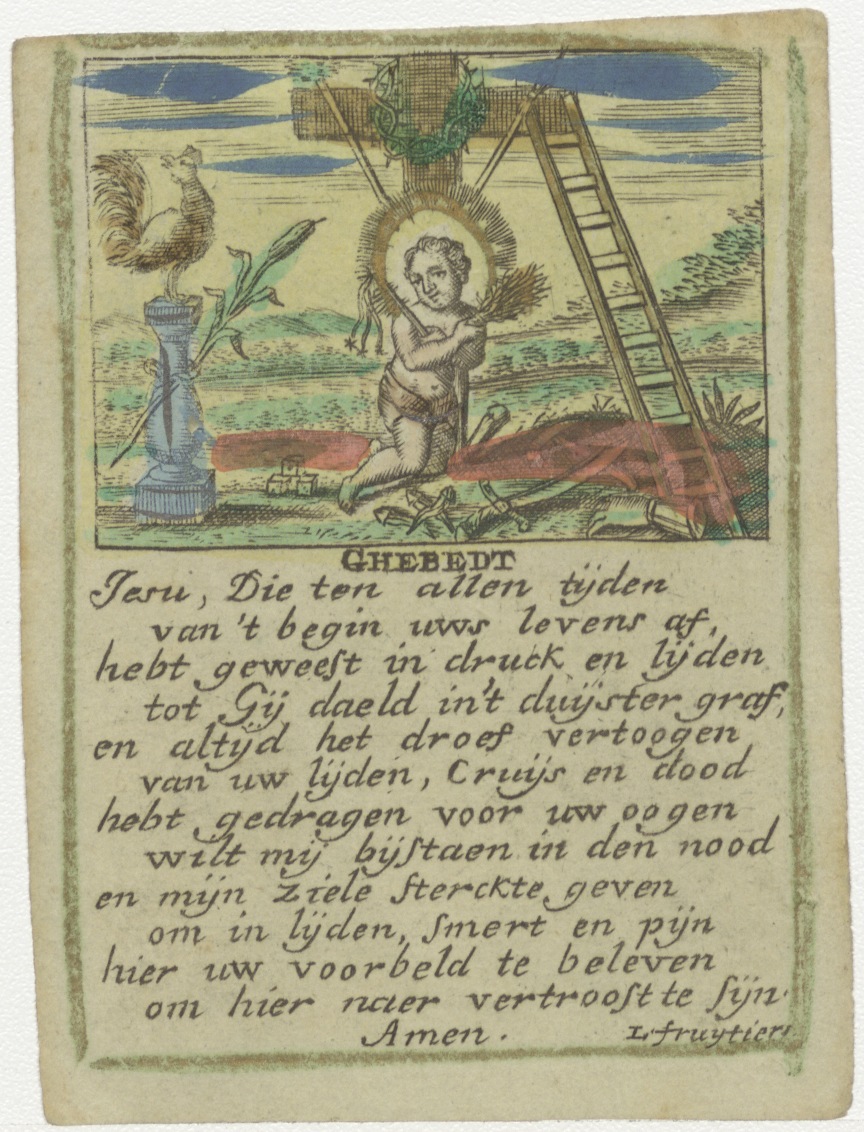 GHEBEDT
Jesu, Die ten allen tijden
van 't begin uws levens af,
hebt geweeſt in druck en lijden
tot Gij daeld in't duijster graf,
en altijd het droef vertoogen
van uw lijden, Cruijs en dood
hebt gedragen voor uw oogen
wilt mij bijſtaen in den nood
en mijn ziele ſterckte geven
om in lijden, ſmert en pijn
hier uw voorbeld te beleven
om hier naer vertrooſt te ſijn.
Amen.
L. fruijtiers